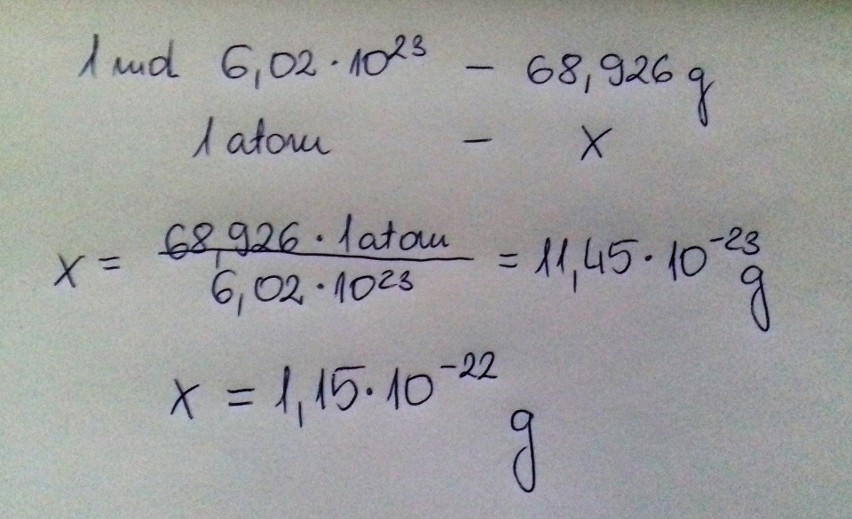 1 mol 6,02·10²³ – 68,926 g
1 atom – x
x = 68,926 · 1 atom / 6,02·10²³ = 11,45·10⁻²³ g
x = 1,15·10⁻²² g